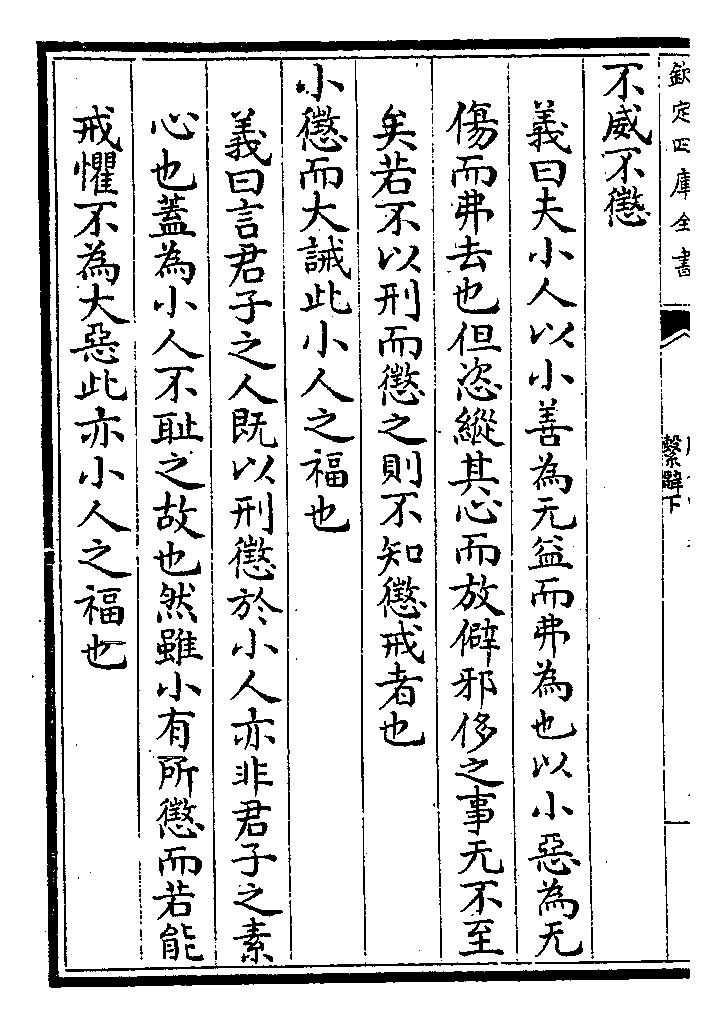 欽定四庫全書
繫辭下
不威不懲
義曰夫小人以小善為无益而弗為也以小惡為无
傷而弗去也但恣縱其心而放僻邪侈之事无不至
矣若不以刑而懲之則不知懲戒者也
小懲而大誡此小人之福也
義曰言君子之人既以刑懲於小人亦非君子之素
心也蓋為小人不耻之故也然雖小有所懲而若能
戒懼不為大惡此亦小人之福也